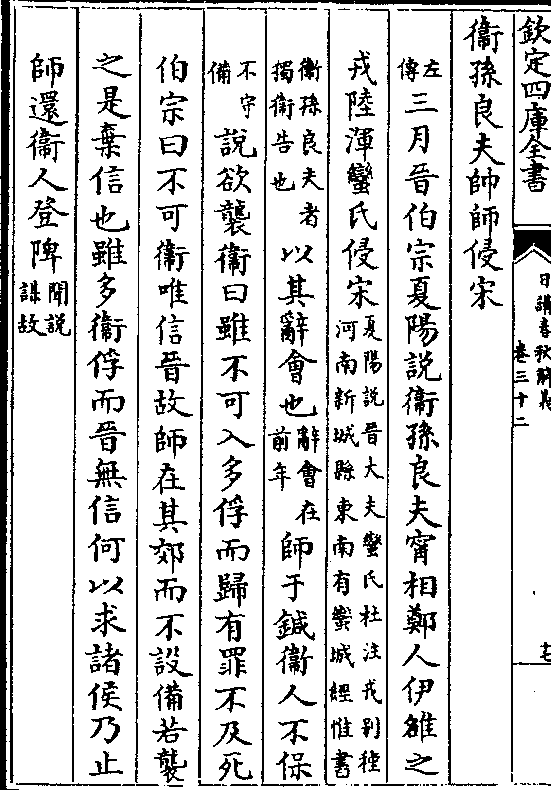 欽定四庫全書
日講春秋解義
卷三十二
衛孫良夫帥師侵宋
左傳三月晉伯宗夏陽說衛孫良夫甯相鄭人伊雒之
戎陸渾蠻氏侵宋夏陽說晉大夫蠻氏杜注戎别種河南新城縣東南有蠻城經惟書
衛孫良夫者獨衛告也以其辭會也辭會在前年師于鍼衛人不保
不守備說欲襲衛曰雖不可入多俘而歸有罪不及死
伯宗曰不可衛唯信晉故師在其郊而不設備若襲
之是棄信也雖多衛俘而晉無信何以求諸侯乃止
師還衛人登陴聞說謀故